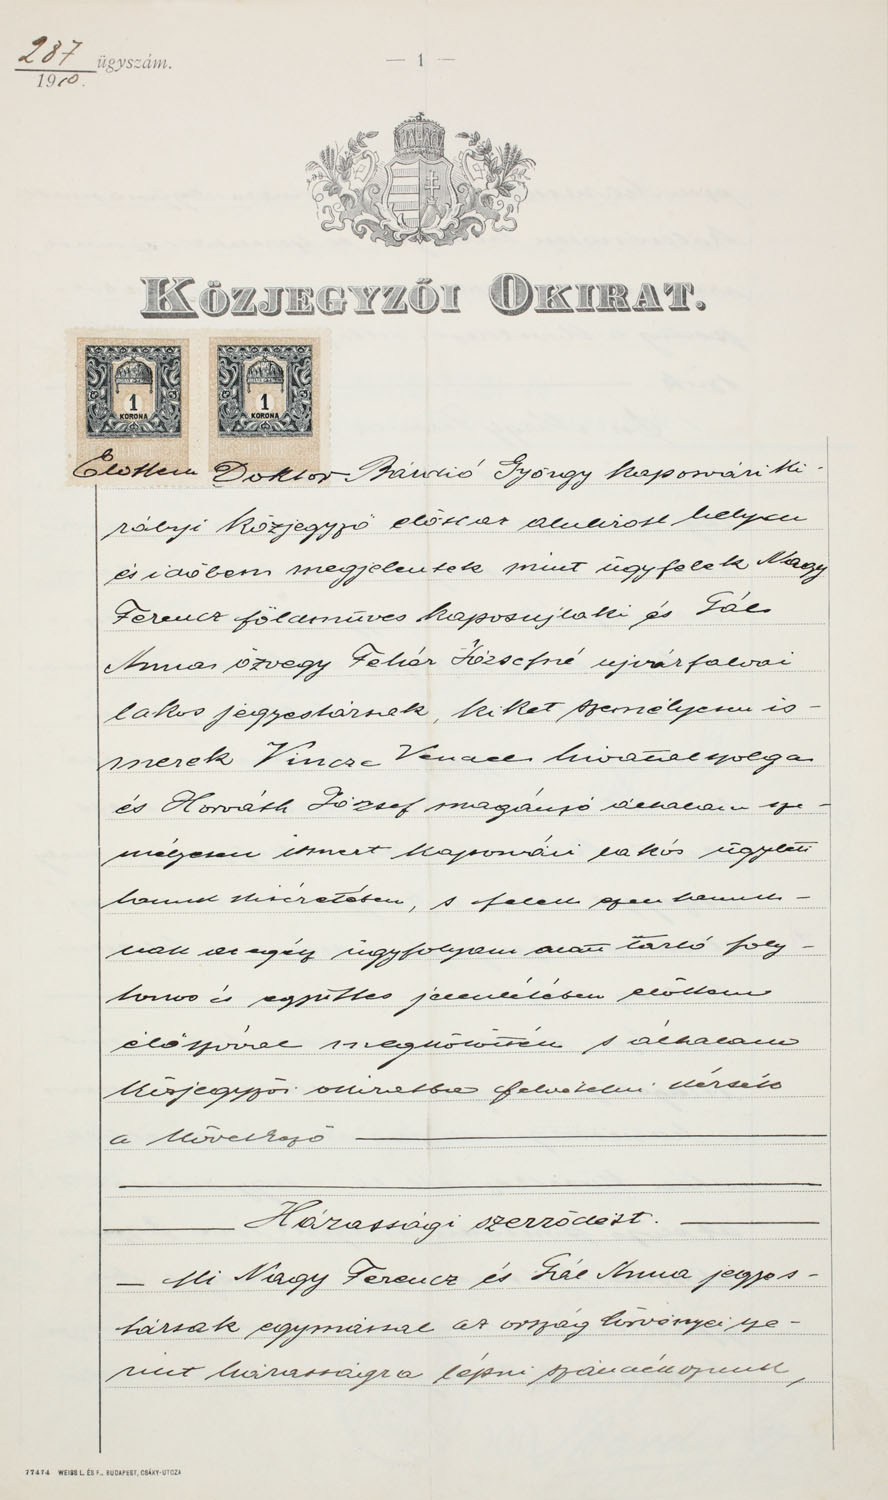 287 ügyszám.
1910.
— 1 —
KÖZJEGYZŐI OKIRAT.
1 KORONA
1 KORONA
Előttem Doktor György kaposvári ki-
rályi közjegyző előtt az alulirott helyen
és időben megjelentek mint ügyfelek Nagy
Ferencz földműves kaposujlaki és Gál
Anna özvegy Fehér Józsefné ujvárfalvai
lakos jegyestársak, kiket személyesen is-
merek Vincze Vencel hivatalszolga
és Horváth József magánzó általam sze-
mélyesen ismert kaposvári lakós ügyleti
tanuk kiséretében, s felek ezen tanuk-
nak az egész ügyfolyam alatt tartó foly-
tonos és együttes jelenlétében előttem
élőszóval megkötötték s általam
közjegyzői okiratba felvétetni kérték
a következő
Házassági szerződést.
— Mi Nagy Ferencz és Gál Anna jegyes-
társak egymással az ország törvényei sze-
rint házasságra lépni szándékozunk,
77474 WEISS L. ÉS F., BUDAPEST, CSÁKY-UTCZA